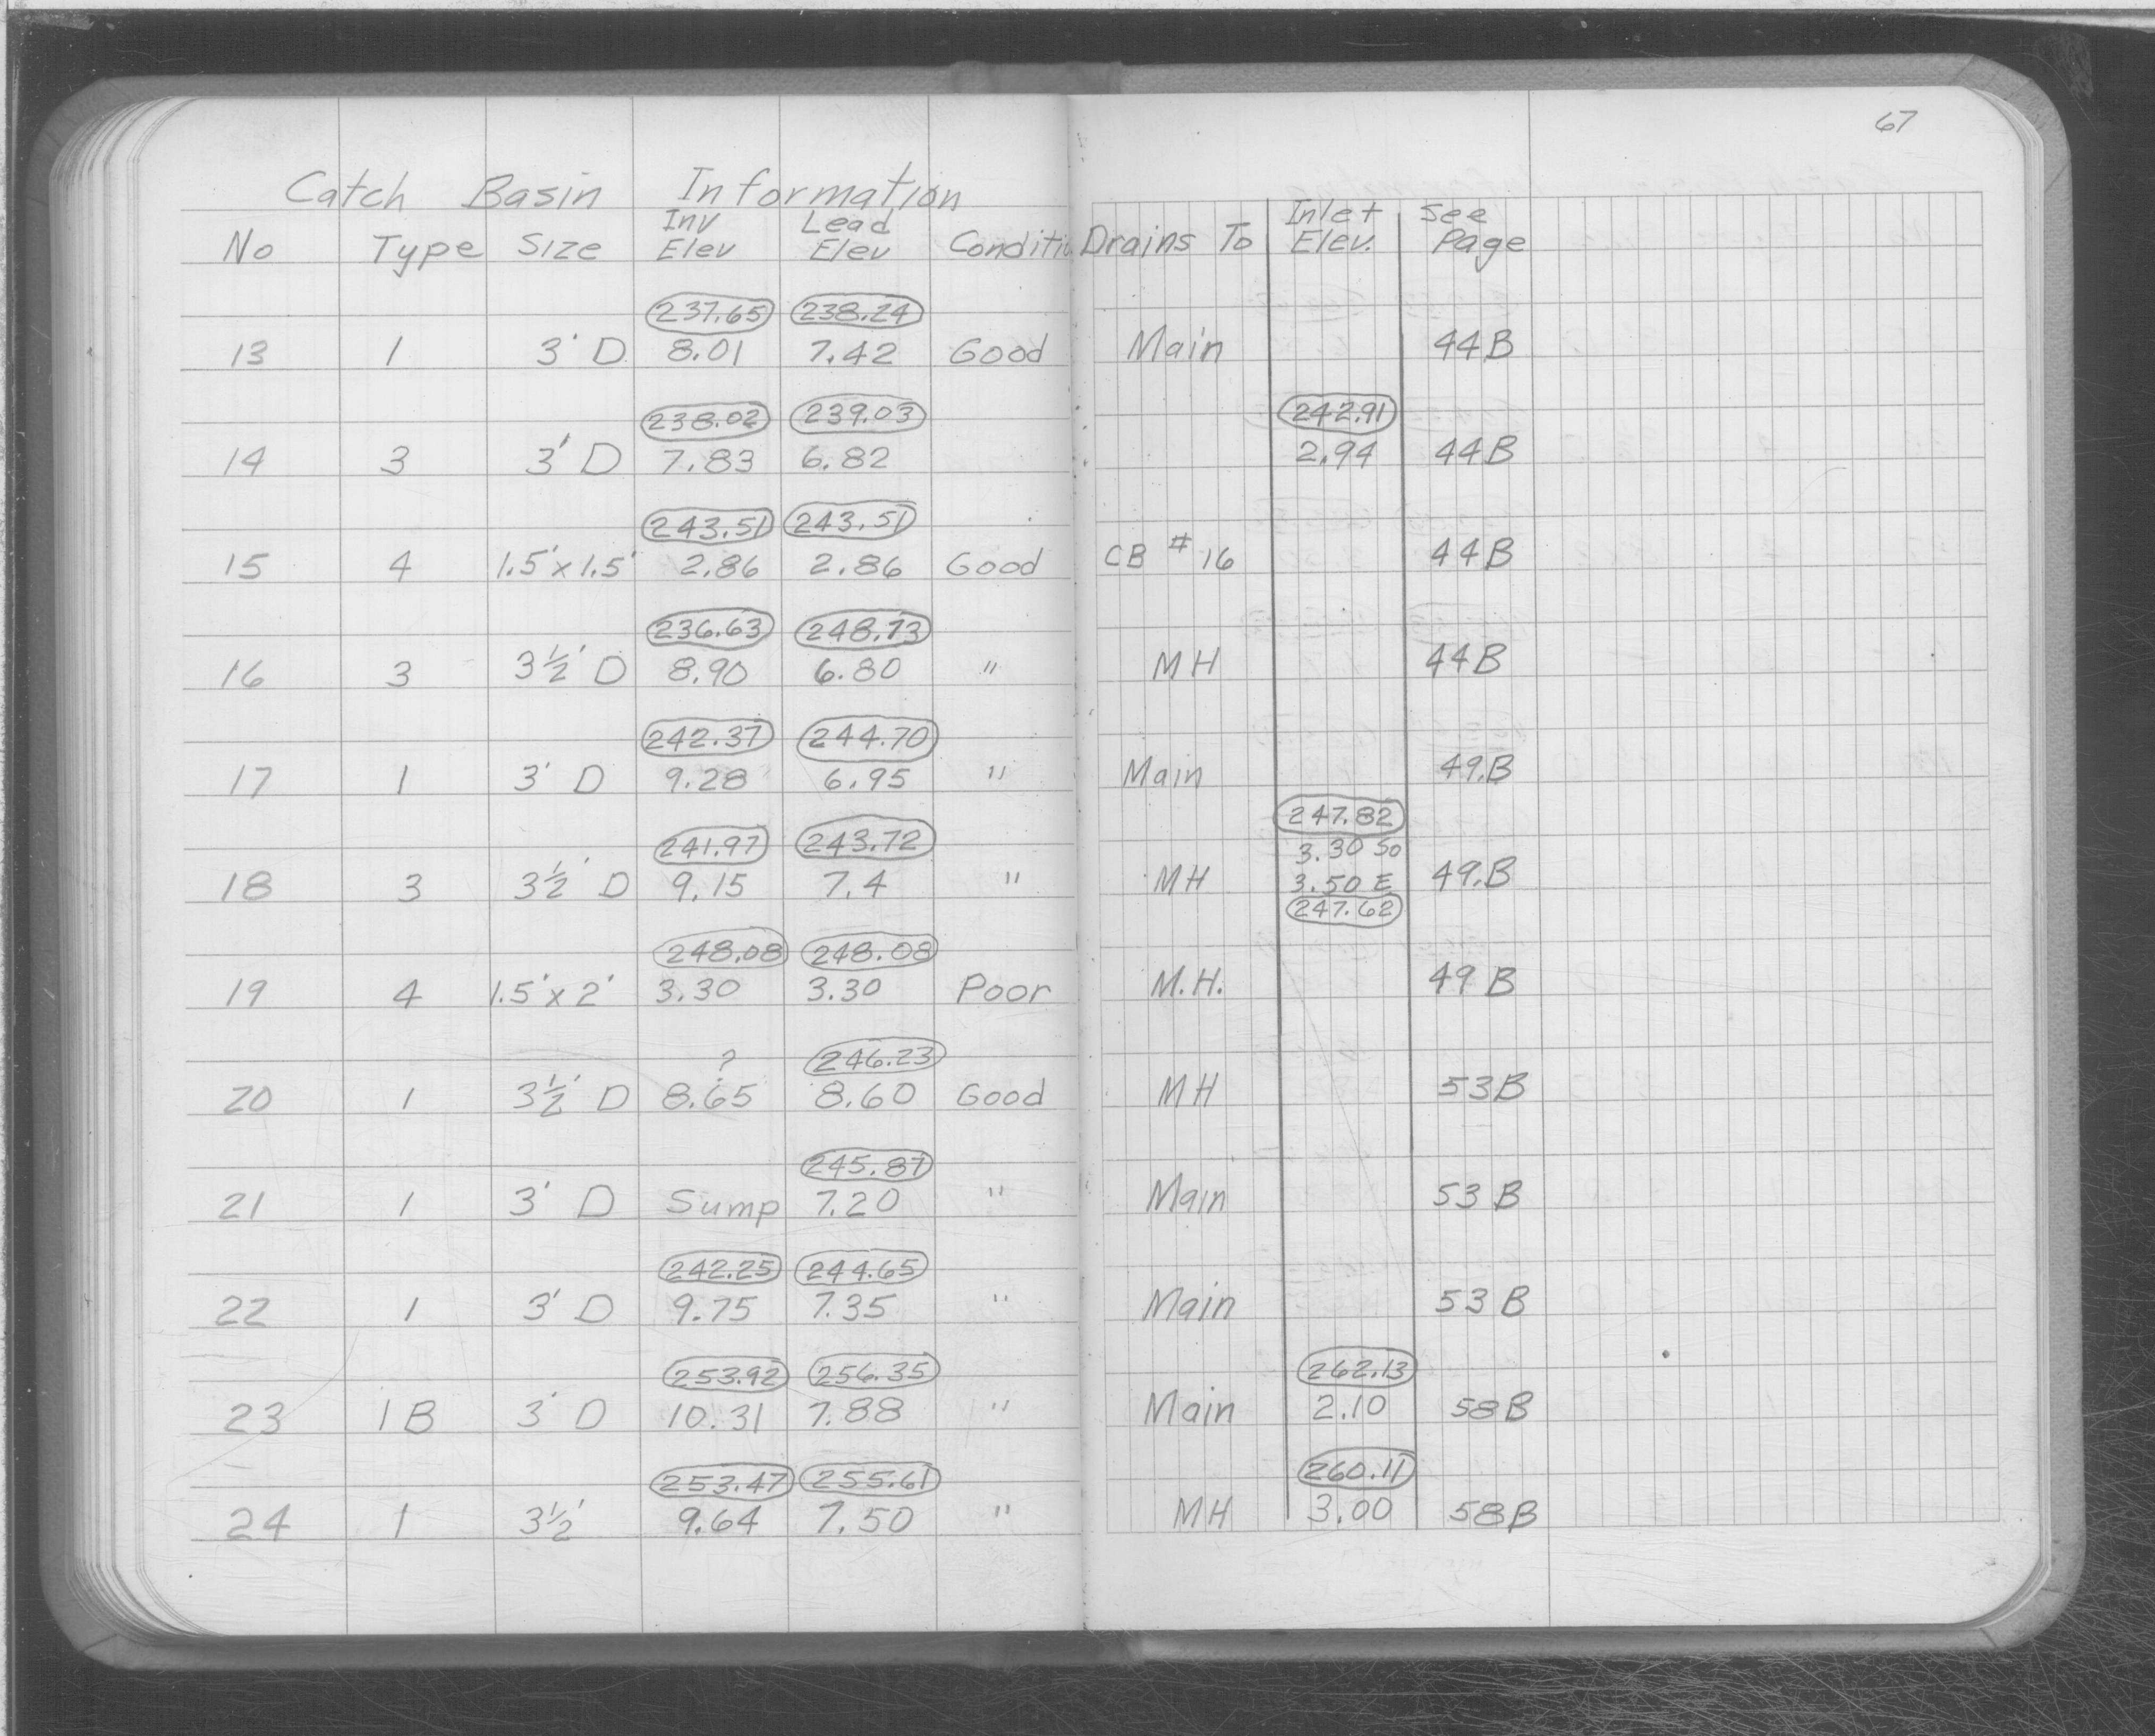 67
Catch Basin Information
Inv Lead Inlet See
No Type Size Elev Elev Conditi Drains To Elev. Page
237.65 238.24
13 1 3' D 8.01 7.42 Good Main 44B
238.02 239.03 242.91
14 3 3' D 7.83 6.82 2.94 44B
243.51 243.51
15 4 1.5'x1.5' 2.86 2.86 Good CB #16 44B
236.63 248.73
16 3 3½' D 8.90 6.80 " MH 44B
242.37 244.70
17 1 3' D 9.28 6.95 " Main 49.B
247.82
241.97 243.72 3.30 So
18 3 3½' D 9.15 7.4 " MH 3.50 E 49.B
247.62
248.08 248.08
19 4 1.5'x2' 3.30 3.30 Poor M.H. 49B
? 246.23
20 1 3½' D 8.65 8.60 Good MH 53B
245.87
21 1 3' D Sump 7.20 " Main 53B
242.25 244.65
22 1 3' D 9.75 7.35 " Main 53B
253.92 256.35 262.13
23 1B 3' D 10.31 7.88 " Main 2.10 58B
253.47 255.61 260.11
24 1 3½' 9.64 7.50 " MH 3.00 58B